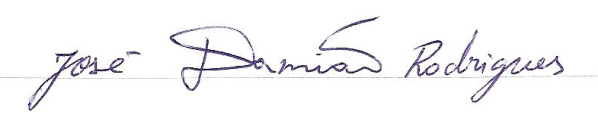 José Damião Rodrigues